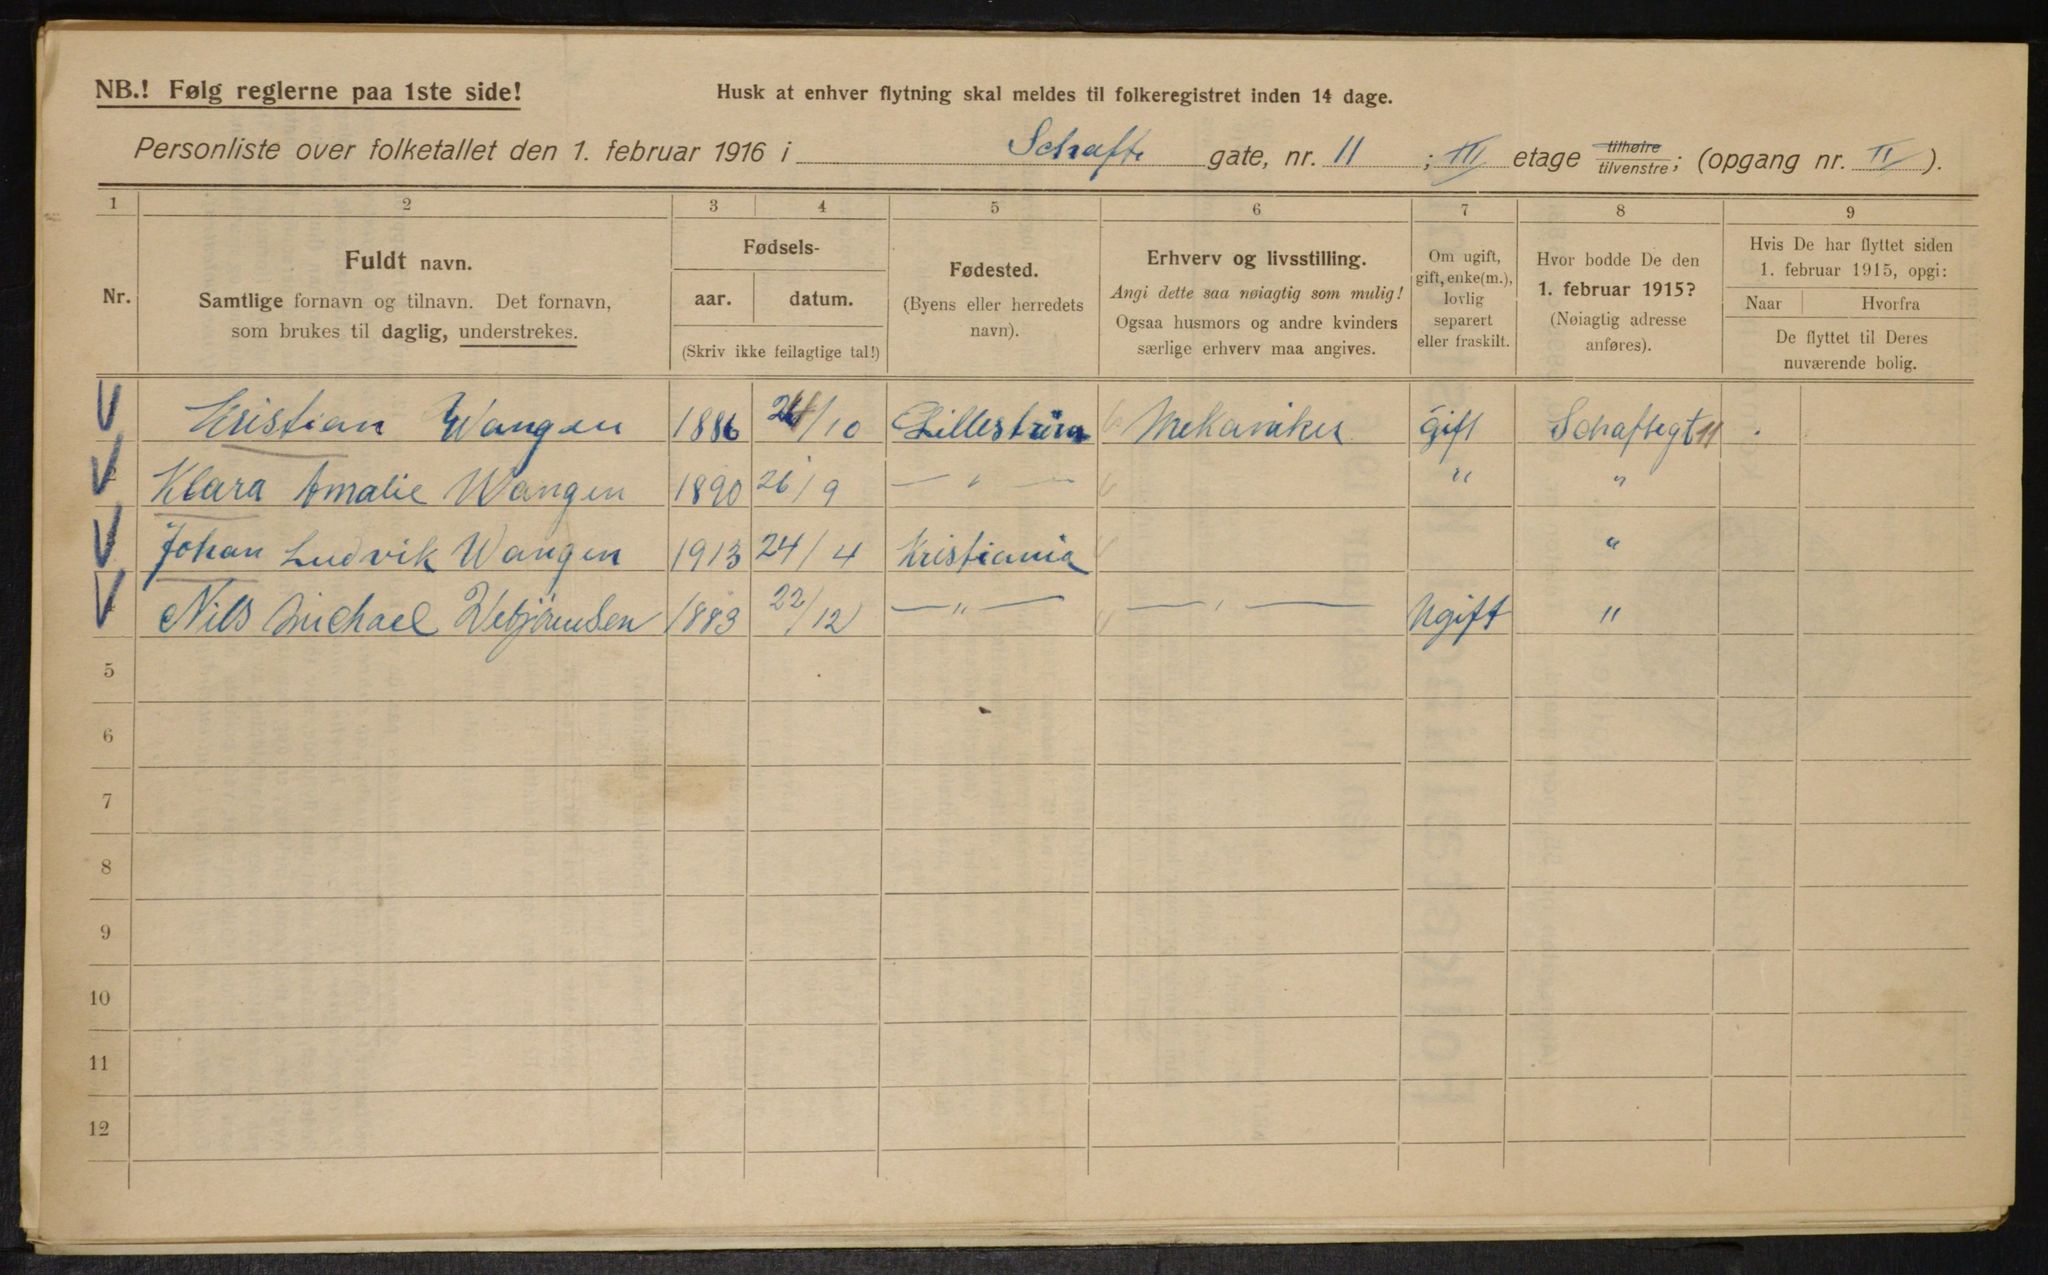 NB.! Følg reglerne paa 1ste side!
Husk at enhver flytning skal meldes til folkeregistret inden 14 dage.
Personliste over folketallet den 1. februar 1916 i Schafte gate, nr. 11 ; III etage tilhøire tilvenstre; (opgang nr. II ).
1 2 3 4 5 6 7 8 9
Nr.
Fuldt navn.
Samtlige fornavn og tilnavn. Det fornavn,
som brukes til daglig, understrekes.
Fødsels-
aar. datum.
(Skriv ikke feilagtige tal!)
Fødested.
(Byens eller herredets
navn).
Erhverv og livsstilling.
Angi dette saa nøiagtig som mulig!
Ogsaa husmors og andre kvinders
særlige erhverv maa angives.
Om ugift,
gift, enke(m.),
lovlig
separert
eller fraskilt.
Hvor bodde De den
1. februar 1915?
(Nøiagtig adresse
anføres).
Hvis De har flyttet siden
1. februar 1915, opgi:
Naar Hvorfra
De flyttet til Deres
nuværende bolig.
Kristian Wangen 1886 24/10 Lillestrøm Mekaniker gift Schaftegt 11
Klara Amalie Wangen 1890 26/9 — " — " "
Johan Ludvik Wangen 1913 24/4 Kristiania "
Nils Michael 1883 22/12 — " — — " — Ugift "
5
6
7
8
9
10
11
12